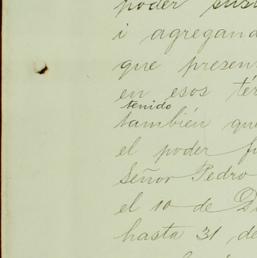 poder sus
i agregand
que presen
en esos tér
tenido
también que
el poder fu
Señor Pedro
el 10 de D
hasta 31 de